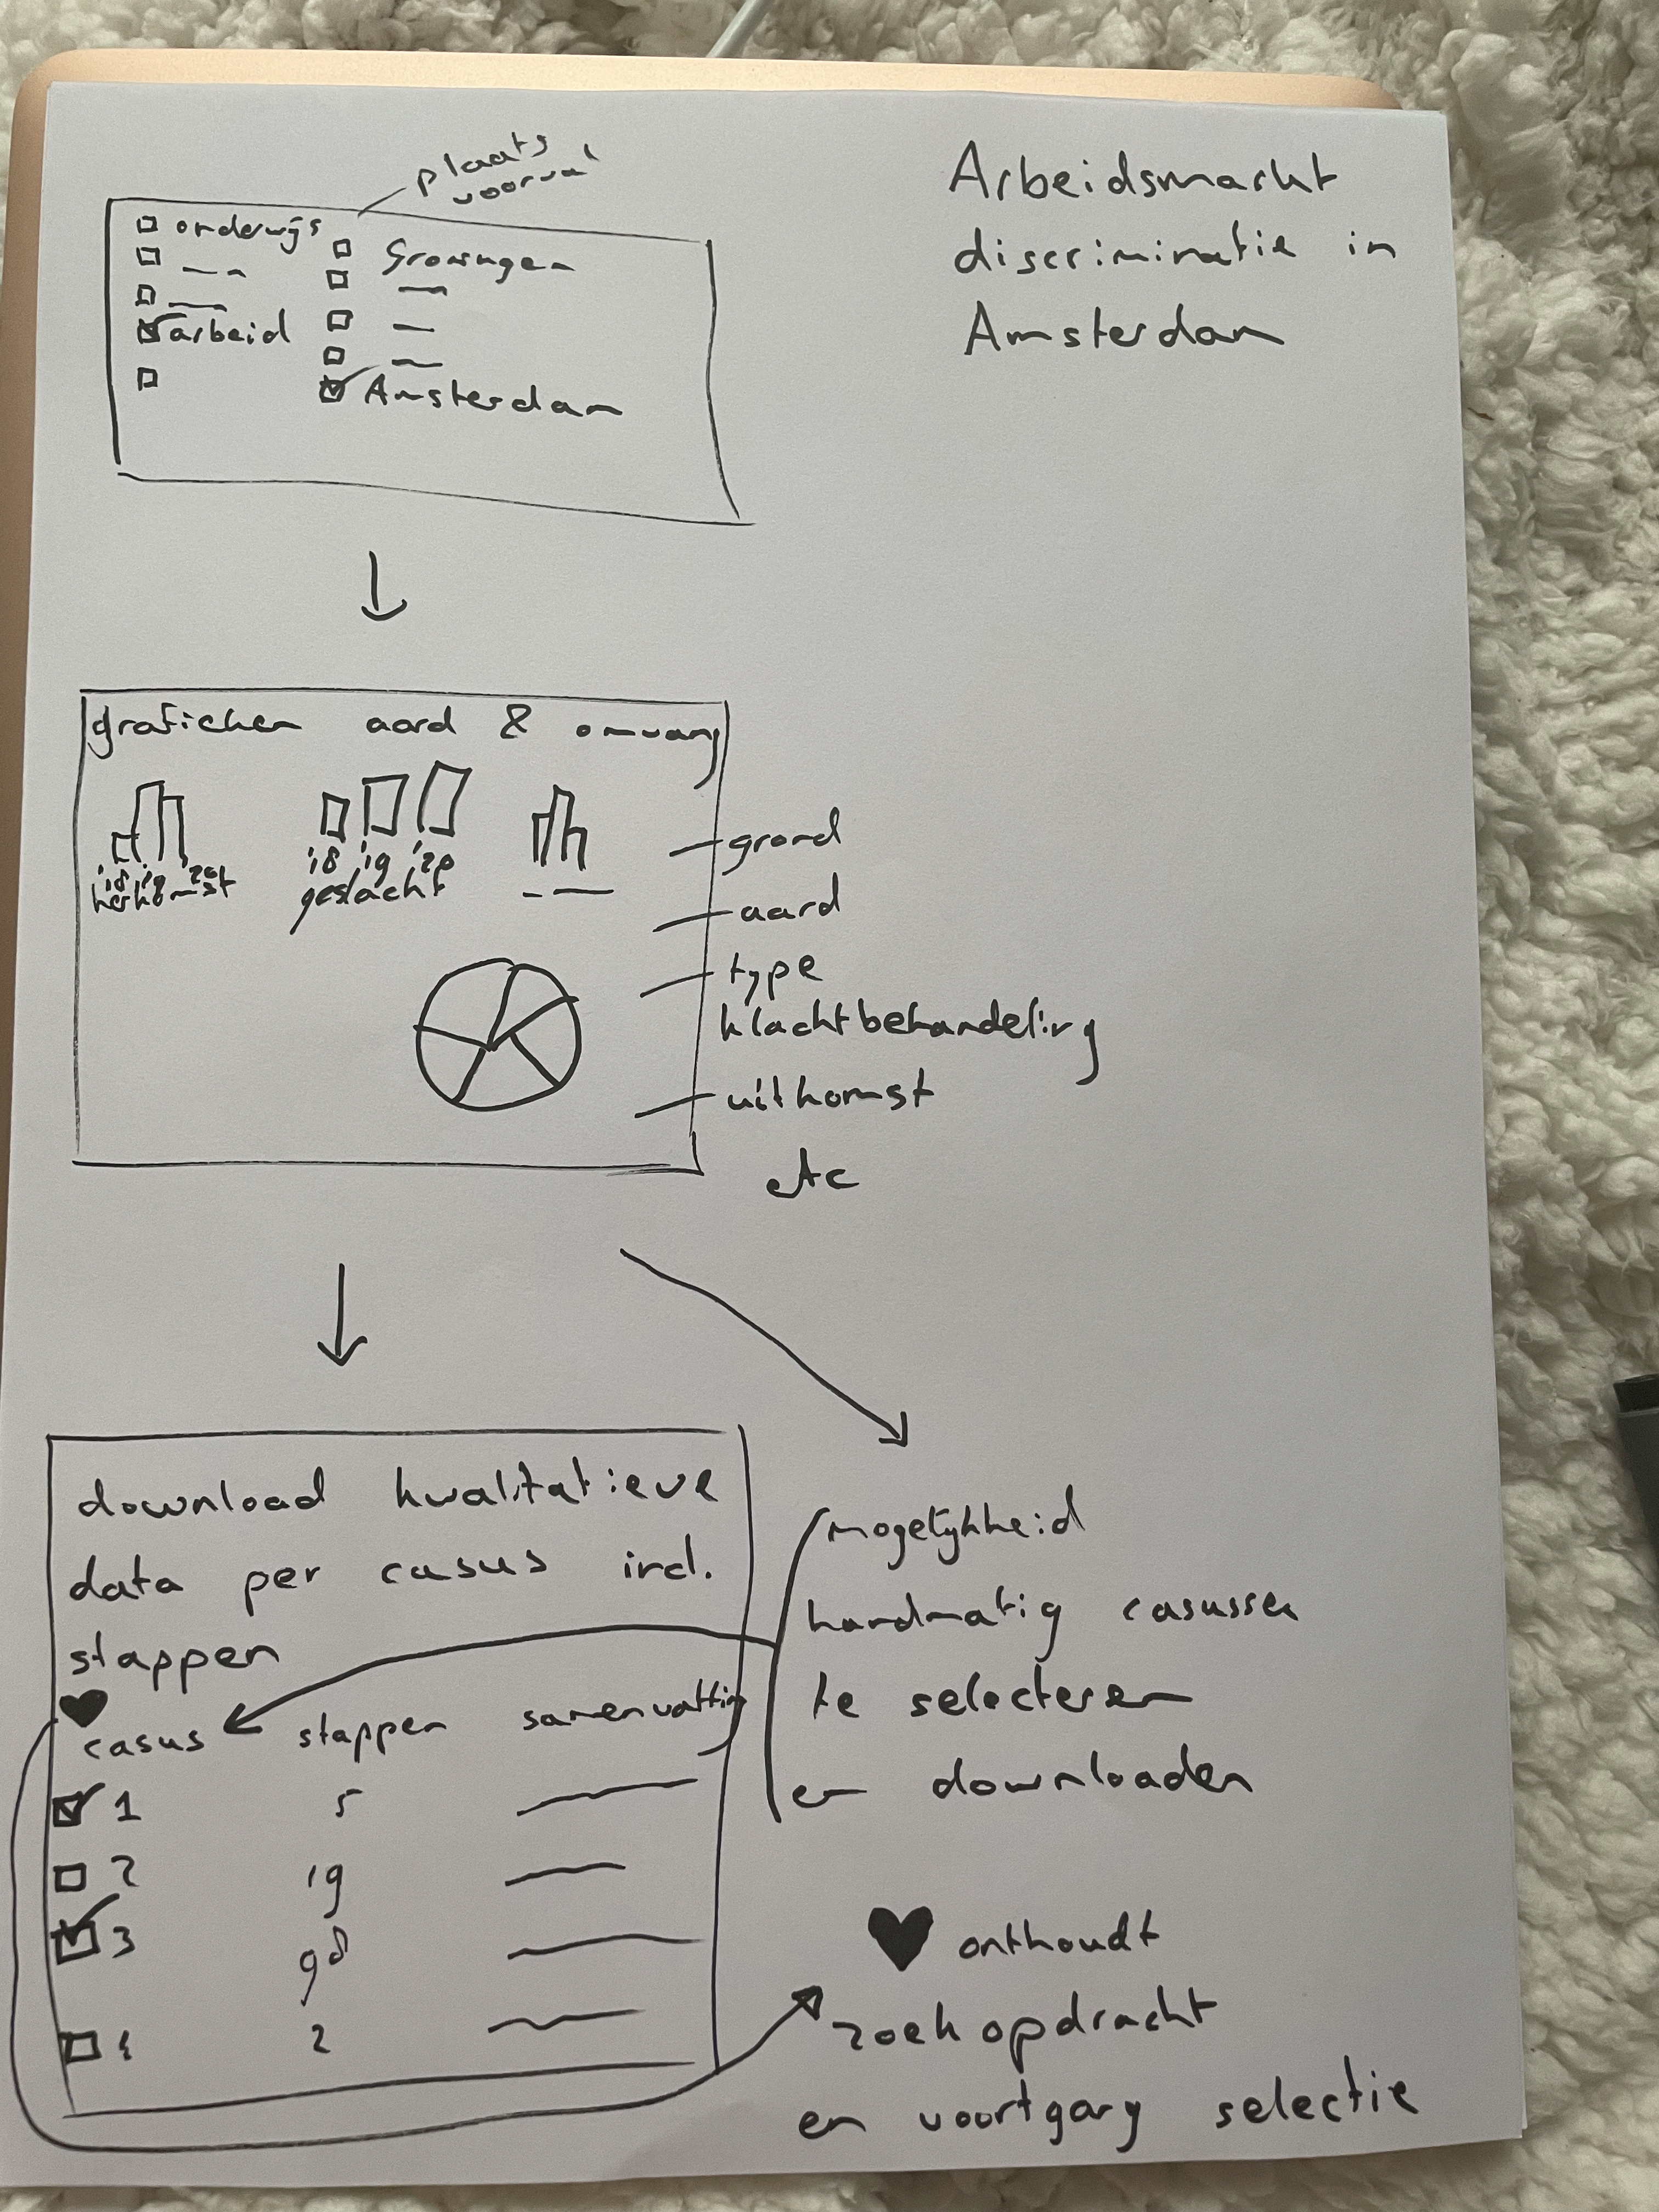 Arbeidsmarkt
discriminatie in
Amsterdam
plaats
voorval
onderwijs
arbeid
Groningen
Amsterdam
grafieken aard & omvang
'18 '19 '20
herkomst
'18 '19 '20
geslacht
grond
aard
type
klachtbehandeling
uitkomst
etc
download kwalitatieve
data per casus incl.
stappen
♥
casus stappen samenvatting
1 5
2 19
3 98
4 2
mogelijkheid
handmatig casussen
te selecteren
en downloaden
♥ onthoudt
zoekopdracht
en voortgang selectie